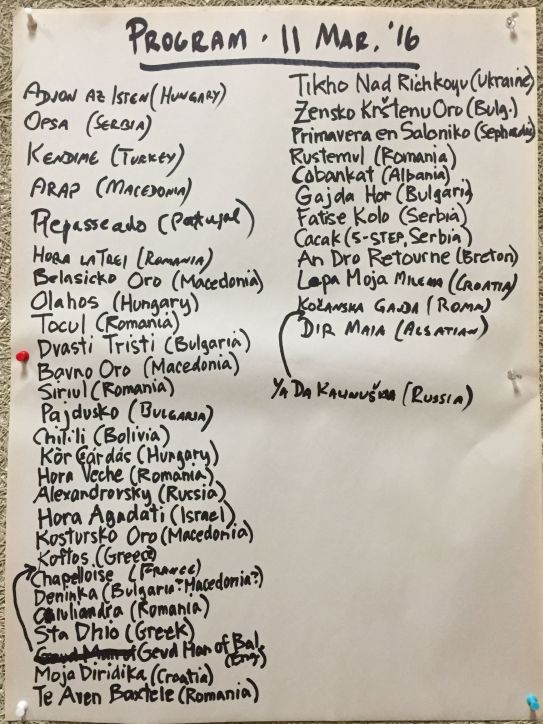 PROGRAM · 11 MAR. '16
ADJON AZ ISTEN (HUNGARY)
OPSA (SERBIA)
KENDIME (TURKEY)
ARAP (MACEDONIA)
Repasseado (Portugal)
HORA LA TREI (ROMANIA)
Belasicko Oro (Macedonia)
Olahos (Hungary)
Tocul (Romania)
Dvasti Tristi (Bulgaria)
Bavno Oro (Macedonia)
Siriul (Romania)
Pajdusko (BULGARIA)
Chilili (Bolivia)
Kör Csárdás (Hungary)
Hora Veche (Romania)
Alexandrovsky (Russia)
Hora Agadati (Israel)
Kostursko Oro (Macedonia)
Koftos (Greece)
Chapelloise (FRANCE)
Deninka (Bulgaria? Macedonia?)
Ciuliandra (Romania)
Sta Dhio (Greek)
Gevd Man of Bal.
(Eng)
Moja Diridika (Croatia)
Te Aven Baxtele (Romania)
Tikho Nad Richkoyu (Ukraine)
Žensko Krštenu Oro (Bulg.)
Primavera en Saloniko (Sephardic)
Rustemul (Romania)
Cobankat (Albania)
Gajda Hor (Bulgaria)
Fatise Kolo (Serbia)
Cacak (5-STEP, Serbia)
An Dro Retourne (Breton)
Lepa Moja MILENA (CROATIA)
KOČANSKA GAJDA (ROMA)
DIR MAIA (ALSATIAN)
YA DA KALINUŠKA (RUSSIA)